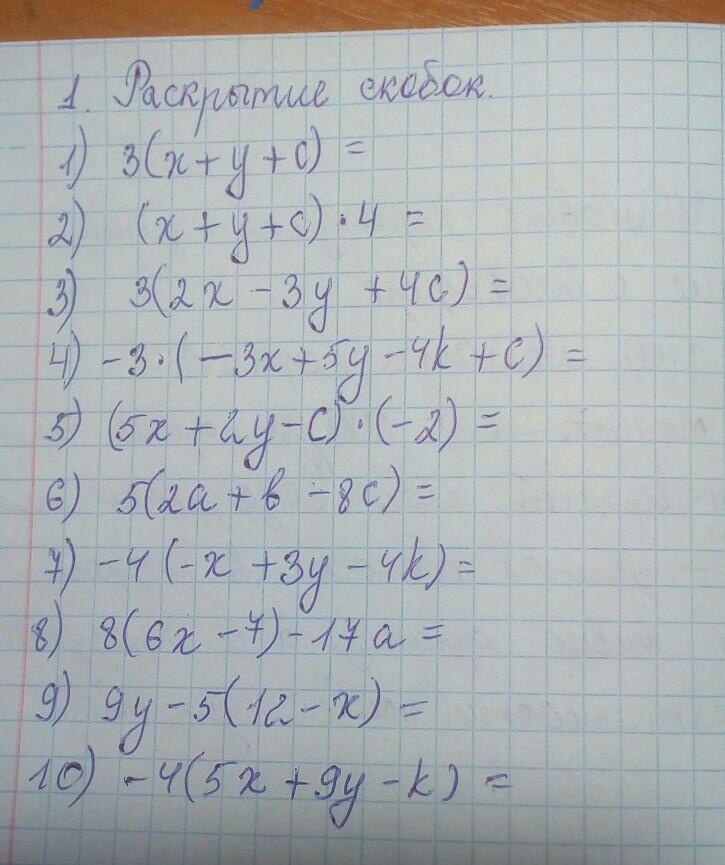 1. Раскрытие скобок.
1) 3(x+y+c) =
2) (x+y+c)·4 =
3) 3(2x-3y+4c) =
4) -3·(-3x+5y-4k+c) =
5) (5x+2y-c)·(-2) =
6) 5(2a+b-8c) =
7) -4(-x+3y-4k) =
8) 8(6x-7)-17a =
9) 9y-5(12-x) =
10) -4(5x+9y-k) =